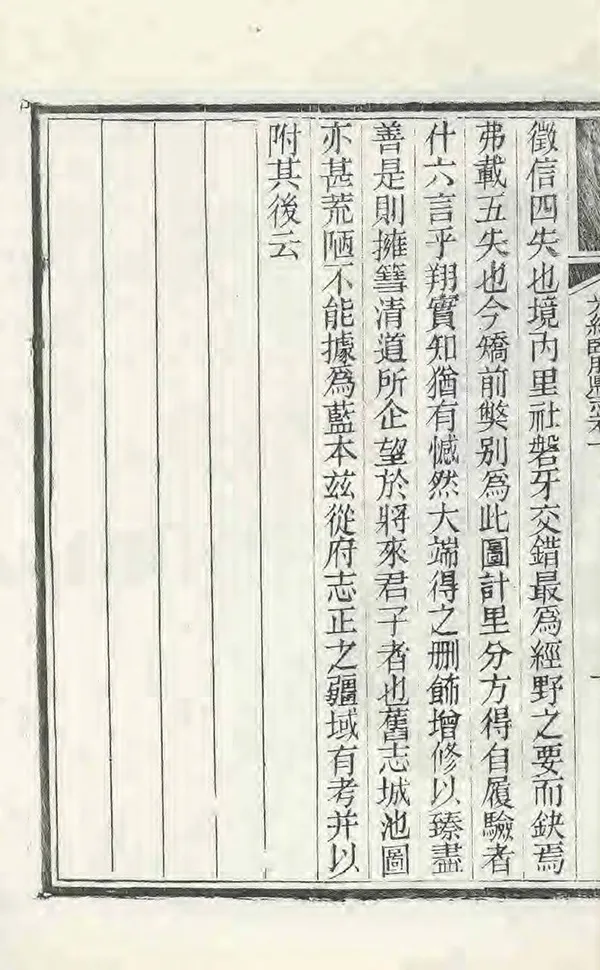 徵信四失也境內里社磐牙交錯最爲經野之要而缺焉
弗載五失也今矯前獘別爲此圖計里分方得自履驗者
什六言乎翔實知猶有憾然大端得之刪飾增修以臻盡
善是則擁篲清道所企望於將來君子者也舊志城池圖
亦甚荒陋不能據爲藍本玆從府志正之疆域有考并以
附其後云